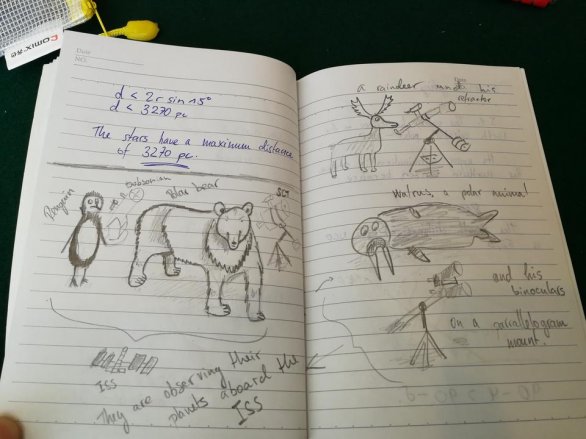 Comix
Date
NO.
d < 2r sin 15°
d < 3270 pc.
The stars have a maximum distance
of 3270 pc.
Penguin
Dobsonian
bear
SCT
ISS
They are observing their
planets aboard the
ISS
Date
a raindeer and his
refractor
Walrus, a polar animal
and his
binoculars
on a parrallelogram
mount.